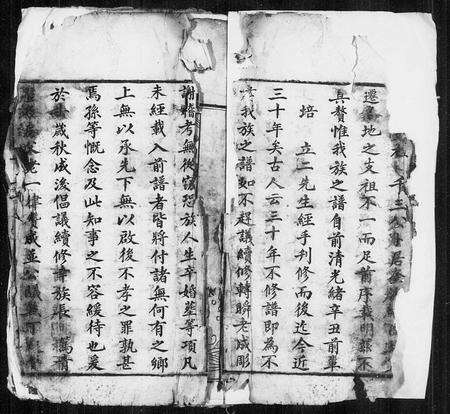 遷各地之支祖不一而足前序載明茲不
具贅惟我族之譜自前清光緒辛丑前輩
培立二先生經手刋修而後迄今近
三十年矣古人云三十年不修譜即為不
孝我族之譜如不趕議續修轉瞬老成彫
謝稽考無從竊恐族人生卒婚塟等項凡
未經載入前譜者皆將付諸無何有之鄉
上無以承先下無以啟後不孝之罪孰甚
焉孫等慨念及此知事之不容緩待也爰
於歲秋成後倡議續修譜族長
老一律贊成並公